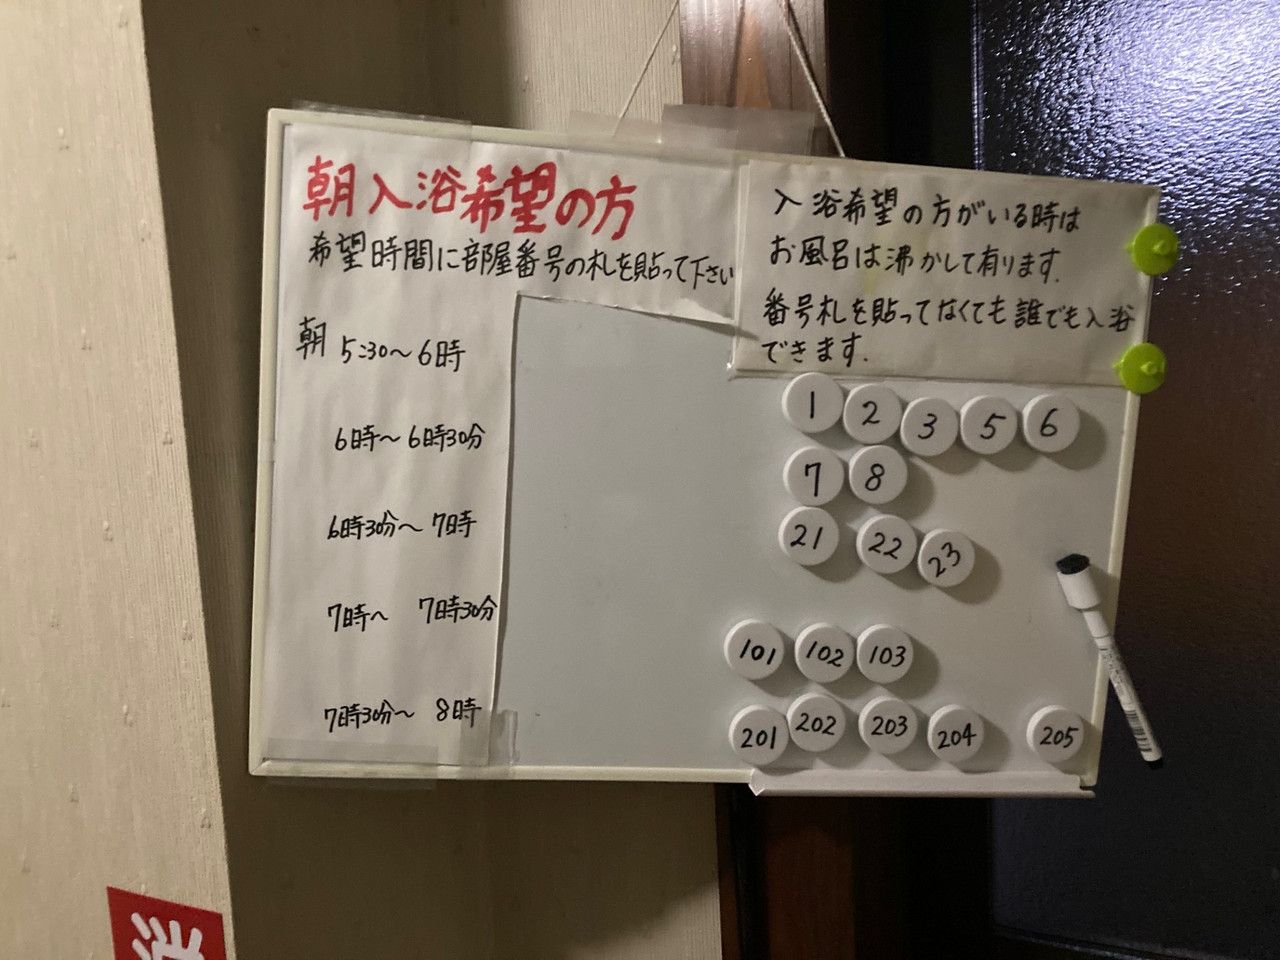 朝入浴希望の方
希望時間に部屋番号の札を貼って下さい
朝 5:30〜6時
6時〜6時30分
6時30分〜7時
7時〜 7時30分
7時30分〜 8時
入浴希望の方がいる時は
お風呂は沸かして有ります.
番号札を貼ってなくても誰でも入浴
できます.
1 2 3 5 6
7 8
21 22 23
101 102 103
201 202 203 204 205